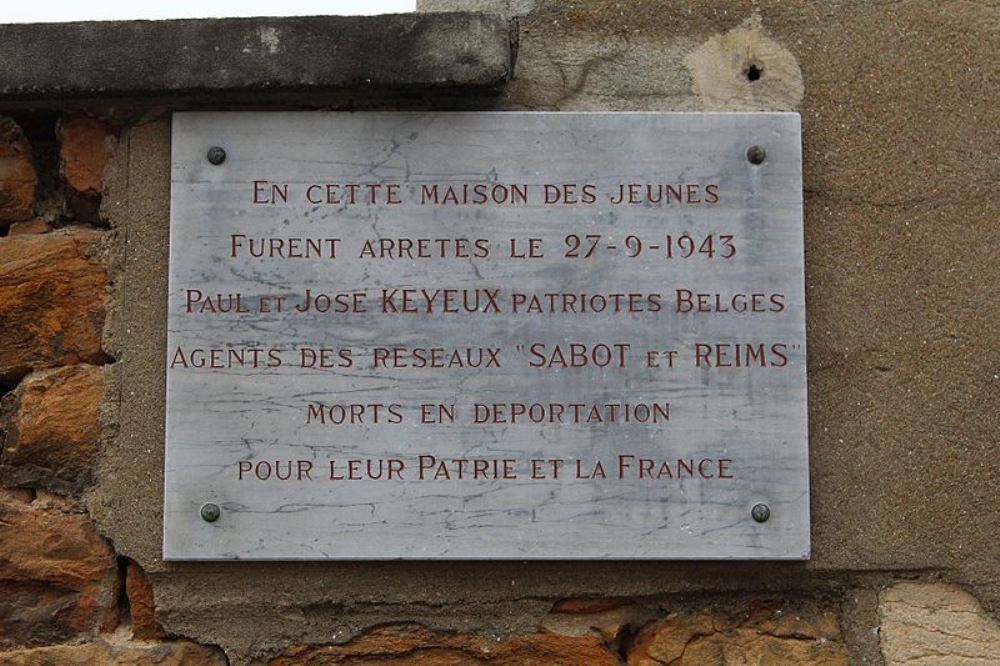 En cette maison des jeunes
Furent arretes le 27-9-1943
Paul et Jose KEYEUX patriotes Belges
Agents des reseaux "SABOT et REIMS"
morts en deportation
pour leur Patrie et la France